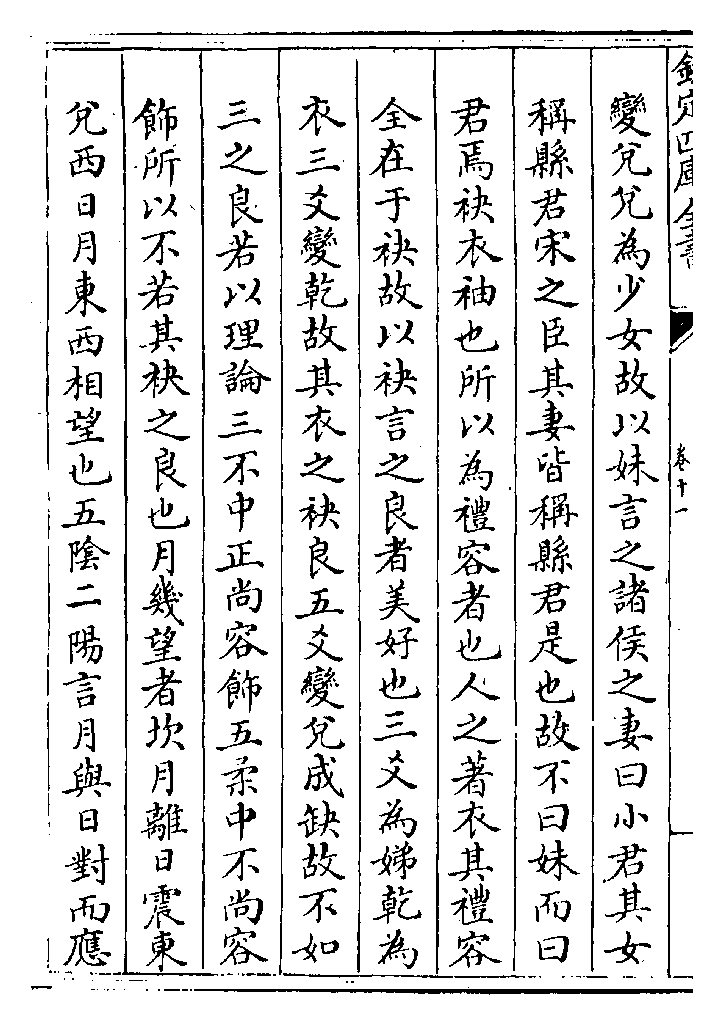 欽定四庫全書
卷十一
變兌兌為少女故以妹言之諸侯之妻曰小君其女
稱縣君宋之臣其妻皆稱縣君是也故不曰妹而曰
君焉袂衣袖也所以為禮容者也人之著衣其禮容
全在于袂故以袂言之良者美好也三爻為娣乾為
衣三爻變乾故其衣之袂良五爻變兌成缺故不如
三之良若以理論三不中正尚容飾五柔中不尚容
飾所以不若其袂之良也月幾望者坎月離日震東
兌西日月東西相望也五陰二陽言月與日對而應